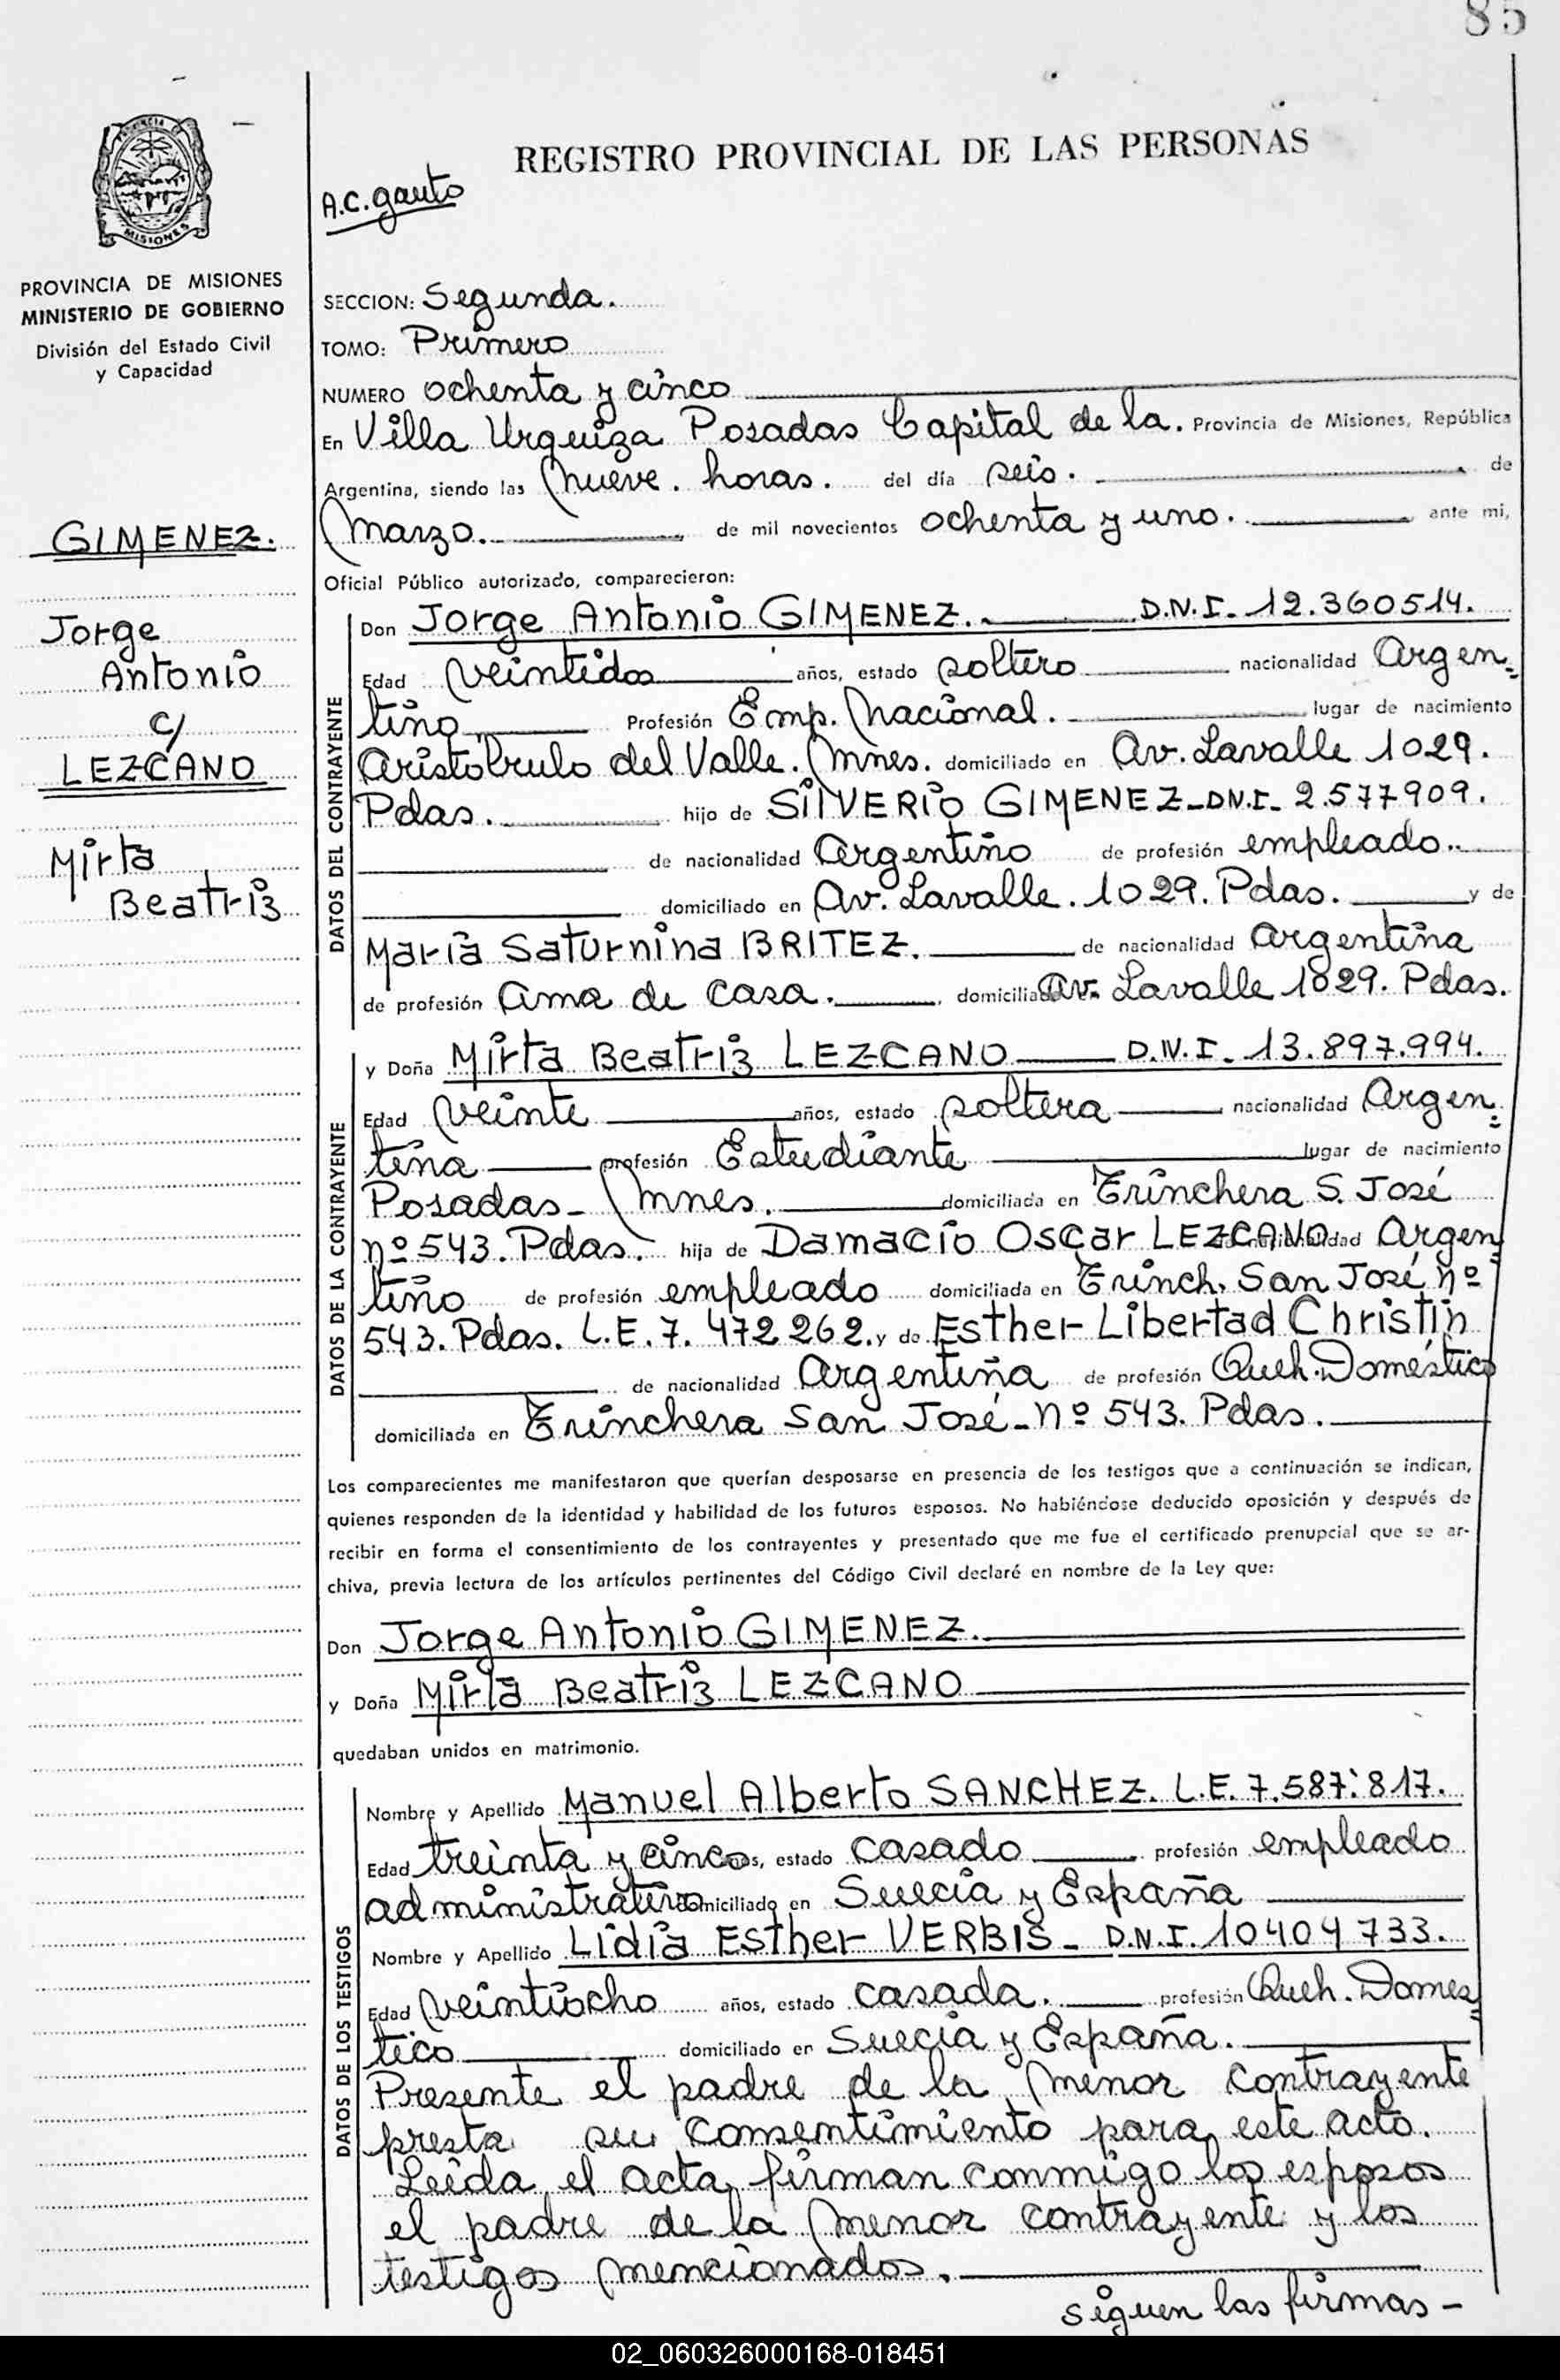 85
PROVINCIA DE
MISIONES
PROVINCIA DE MISIONES
MINISTERIO DE GOBIERNO
División del Estado Civil
y Capacidad
GIMENEZ.
Jorge
Antonio
c/
LEZCANO
Mirta
Beatriz
REGISTRO PROVINCIAL DE LAS PERSONAS
A.C. gauto
SECCION: Segunda.
TOMO: Primero
NUMERO ochenta y cinco
En Villa Urquiza Posadas Capital de la. Provincia de Misiones, República
Argentina, siendo las nueve. horas. del día seis. de
marzo. de mil novecientos ochenta y uno. ante mi,
Oficial Público autorizado, comparecieron:
DATOS DEL CONTRAYENTE
Don Jorge Antonio GIMENEZ. D.N.I. 12.360514.
Edad veintidos años, estado soltero nacionalidad Argen-
tino Profesión Emp. Nacional. lugar de nacimiento
Aristobulo del Valle. Mnes. domiciliado en Av. Lavalle 1029.
Pdas. hijo de SILVERIO GIMENEZ-DN.I- 2.577909.
de nacionalidad Argentino de profesión empleado..
domiciliado en Av. Lavalle. 1029. Pdas. y de
María Saturnina BRITEZ. de nacionalidad Argentina
de profesión ama de casa. domicilia Av. Lavalle 1029. Pdas.
DATOS DE LA CONTRAYENTE
y Doña Mirta Beatriz LEZCANO D.N.I. 13.897.994.
Edad veinte años, estado soltera nacionalidad Argen-
tina profesión Estudiante lugar de nacimiento
Posadas- Mnes. domiciliada en Trinchera S. José
nº 543. Pdas. hija de Damacio Oscar LEZCANO Argen-
tino de profesión empleado domiciliada en Trinch. San José nº
543. Pdas. L.E. 7. 472 262. y de Esther Libertad Christin
de nacionalidad Argentina de profesión Queh. Doméstico
domiciliada en Trinchera San José - nº 543. Pdas.
Los comparecientes me manifestaron que querían desposarse en presencia de los testigos que a continuación se indican,
quienes responden de la identidad y habilidad de los futuros esposos. No habiéndose deducido oposición y después de
recibir en forma el consentimiento de los contrayentes y presentado que me fue el certificado prenupcial que se ar-
chiva, previa lectura de los artículos pertinentes del Código Civil declaré en nombre de la Ley que:
Don Jorge Antonio GIMENEZ.
y Doña Mirta Beatriz LEZCANO
quedaban unidos en matrimonio.
DATOS DE LOS TESTIGOS
Nombre y Apellido Manuel Alberto SANCHEZ. L.E. 7.587.817.
Edad treinta y cinco años, estado casado profesión empleado
administrativo domiciliado en Suecia y España
Nombre y Apellido Lidia Esther VERBIS- D.N.I. 10404733.
Edad veintiocho años, estado casada. profesión Queh. Domes
tico domiciliado en Suecia y España.
Presente el padre de la menor contrayente
presta su consentimiento para este acto.
Leída el acta firman conmigo los esposos
el padre de la menor contrayente y los
testigos mencionados.
siguen las firmas -
02_060326000168-018451